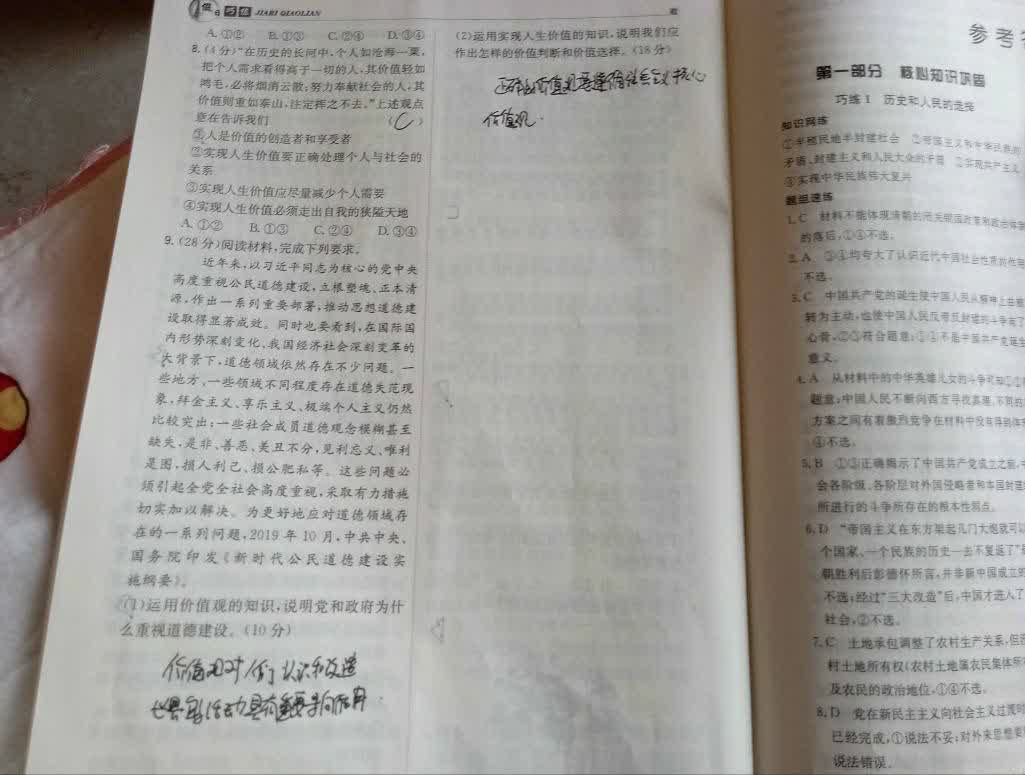 假日巧练 JIARI QIAOLIAN
A.①② B.①③ C.②④ D.③④
8.(4分)“在历史的长河中,个人如沧海一粟,
把个人需求看得高于一切的人,其价值轻如
鸿毛,必将烟消云散;努力奉献社会的人,其
价值则重如泰山,注定挥之不去。”上述观点
意在告诉我们 (C)
①人是价值的创造者和享受者
②实现人生价值要正确处理个人与社会的
关系
③实现人生价值应尽量减少个人需要
④实现人生价值必须走出自我的狭隘天地
A.①② B.①③ C.②④ D.③④
9.(28分)阅读材料,完成下列要求。
近年来,以习近平同志为核心的党中央
高度重视公民道德建设,立根塑魂、正本清
源,作出一系列重要部署,推动思想道德建
设取得显著成效。同时也要看到,在国际国
内形势深刻变化、我国经济社会深刻变革的
大背景下,道德领域依然存在不少问题。一
些地方、一些领域不同程度存在道德失范现
象,拜金主义、享乐主义、极端个人主义仍然
比较突出;一些社会成员道德观念模糊甚至
缺失,是非、善恶、美丑不分,见利忘义、唯利
是图,损人利己、损公肥私等。这些问题必
须引起全党全社会高度重视,采取有力措施
切实加以解决。为更好地应对道德领域存
在的一系列问题,2019年10月,中共中央、
国务院印发《新时代公民道德建设实
施纲要》。
(1)运用价值观的知识,说明党和政府为什
么重视道德建设。(10分)
价值观对人们认识和改造
世界的活动具有重要导向作用
(2)运用实现人生价值的知识,说明我们应
作出怎样的价值判断和价值选择。(18分)
价值观要遵循社会主义核心
价值观.
参考
第一部分 核心知识巩固
巧练1 历史和人民的选择
知识网络
①半殖民地半封建社会 ②帝国主义和中华民族的
矛盾、封建主义和人民大众的矛盾 ③实现共产主义
④实现中华民族伟大复兴
题组速练
1.C 材料不能体现清朝的闭关锁国政策和政治体制
的落后,①④不选。
2.A ③④均夸大了认识近代中国社会性质的作用
不选。
3.C 中国共产党的诞生使中国人民从精神上由被
转为主动,也使中国人民反帝反封建的斗争有了
心骨,②③符合题意;①④不是中国共产党诞生
意义。
4.A 从材料中的中华英雄儿女的斗争可知①②
题意;中国人民不断向西方寻找真理,不同的
方案之间有着激烈竞争在材料中没有得到体
④不选。
5.B ①③正确揭示了中国共产党成立之前,
会各阶级、各阶层对外国侵略者和本国封建
所进行的斗争所存在的根本性弱点。
6.D “帝国主义在东方架起几门大炮就可以
个国家、一个民族的历史一去不复返了”是
朝胜利后彭德怀所言,并非新中国成立的
不选;经过“三大改造”后,中国才进入了
社会,②不选。
7.C 土地承包调整了农村生产关系,但
村土地所有权(农村土地属农民集体所
及农民的政治地位,①④不选。
8.D 党在新民主主义向社会主义过渡时
已经完成,①说法不妥;对外来思想要
说法错误。